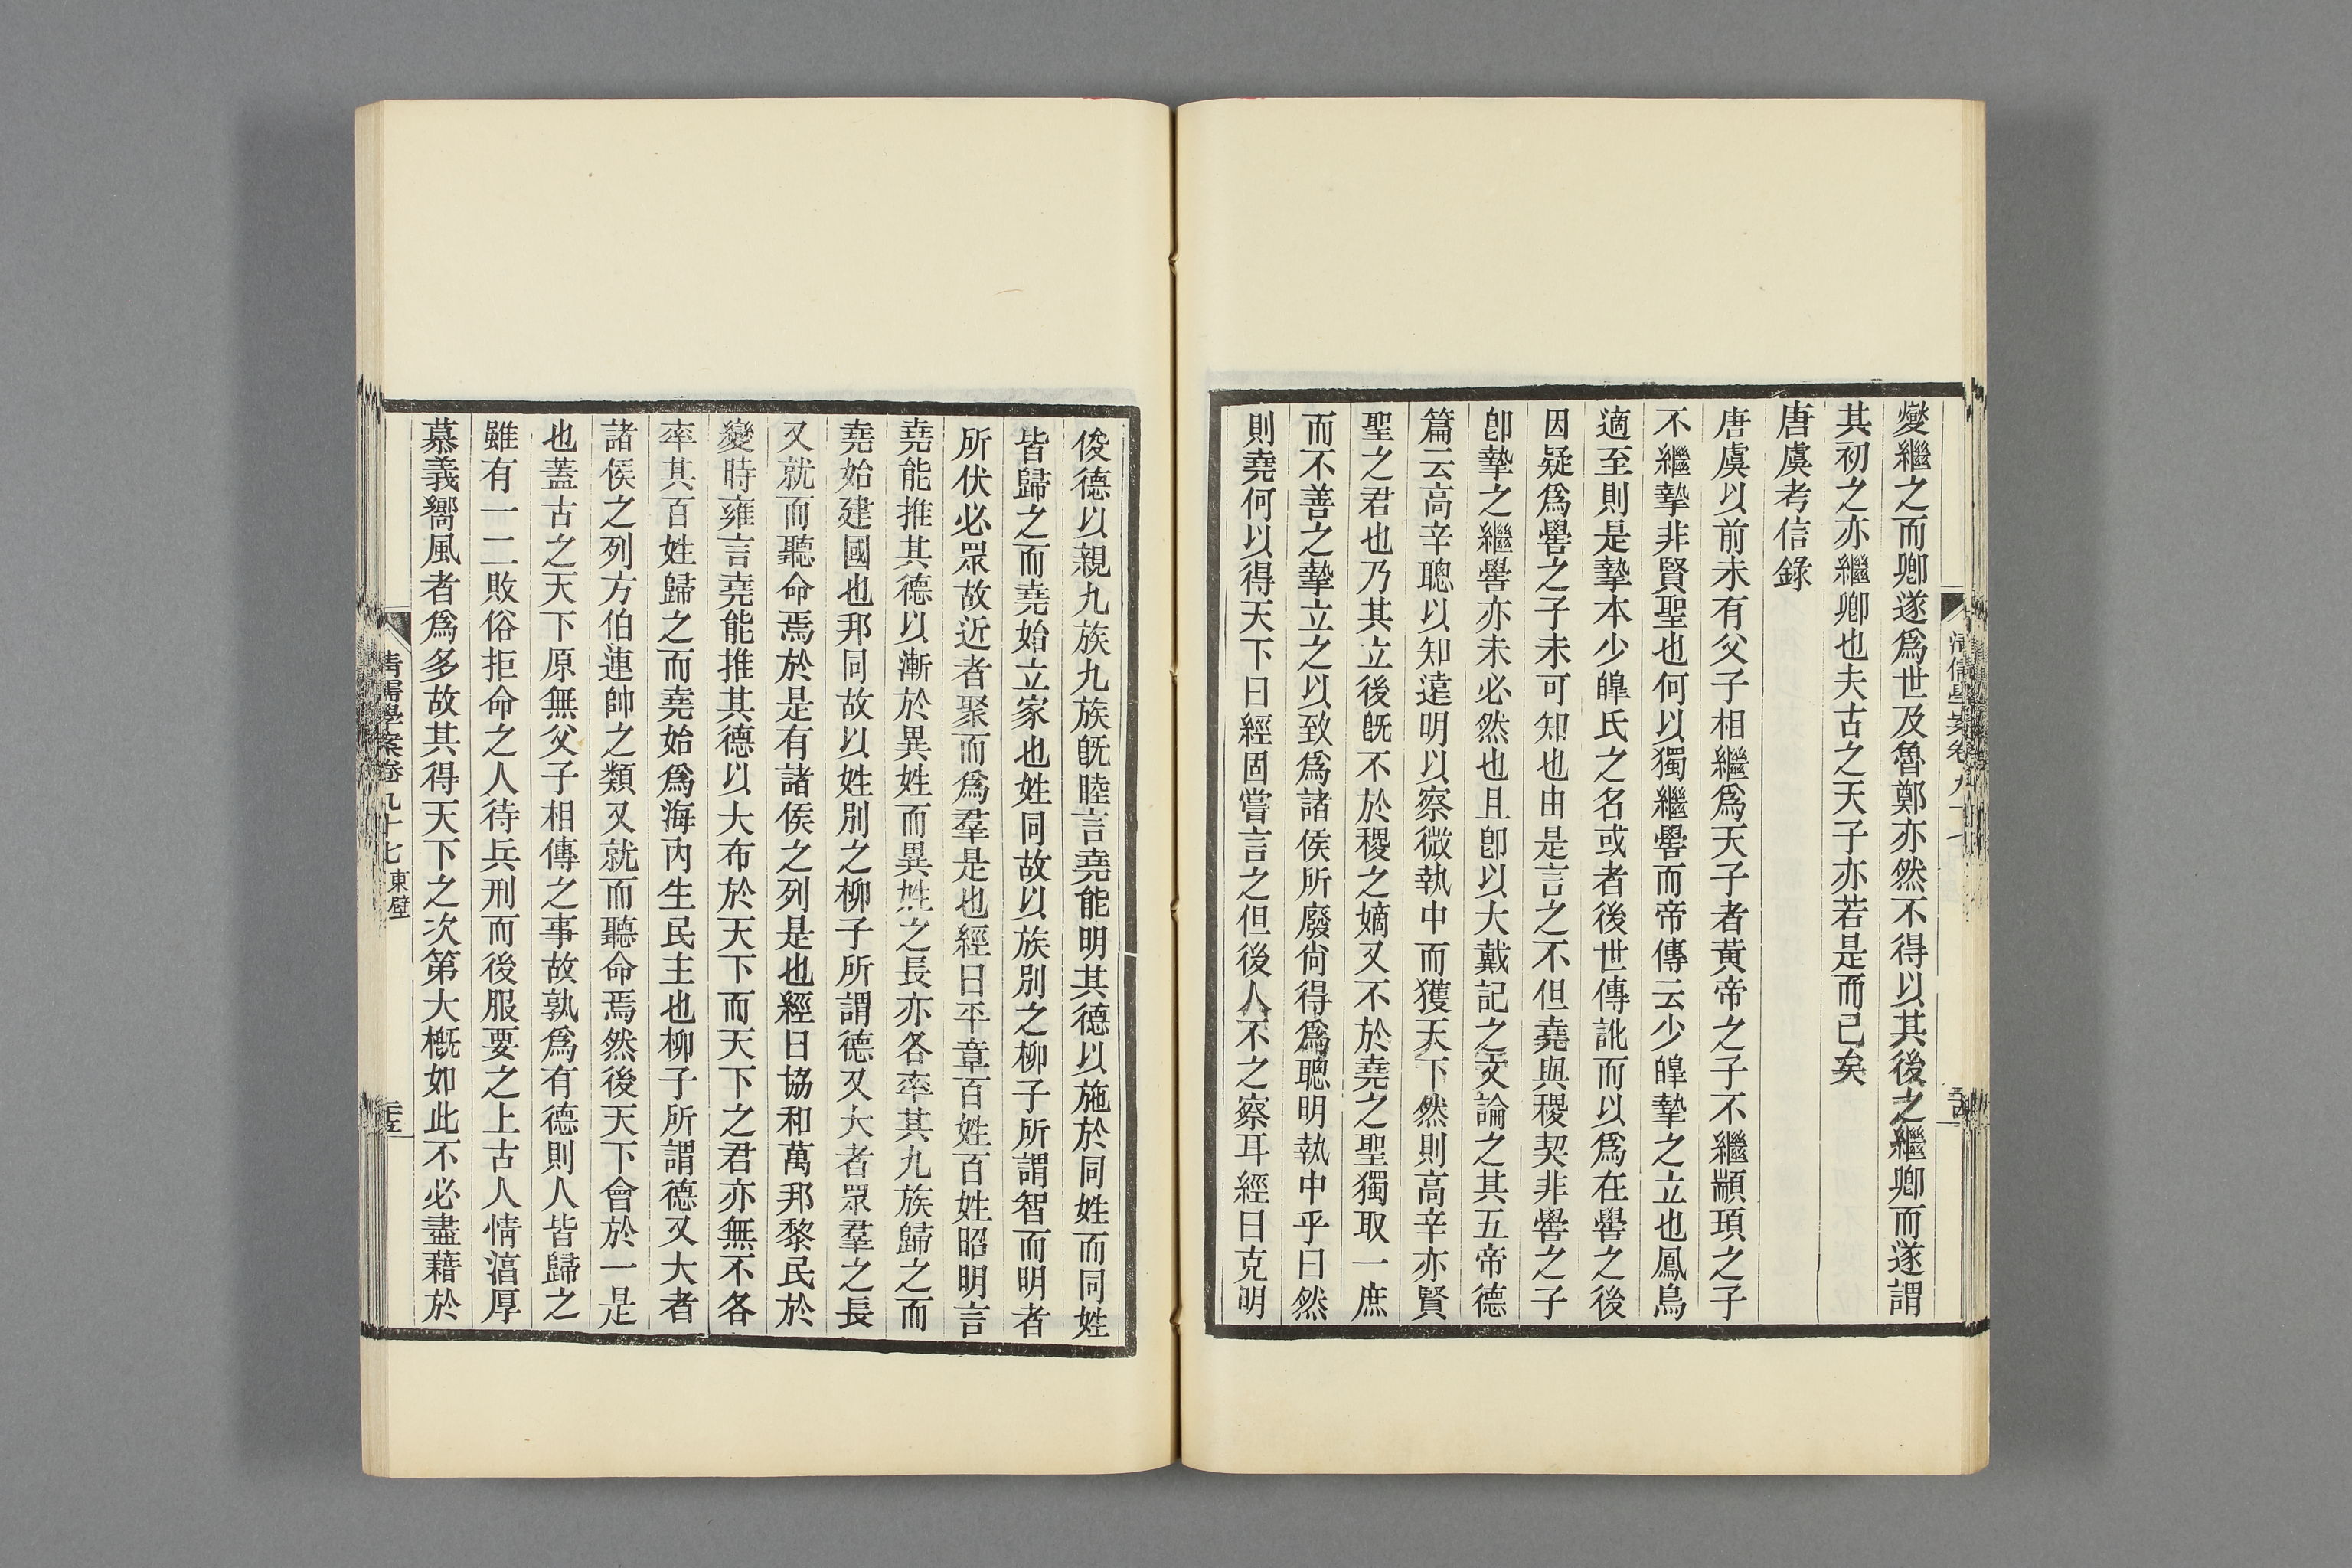 燮繼之而卿遂爲世及魯鄭亦然不得以其後之繼卿而遂謂
其初之亦繼卿也夫古之天子亦若是而已矣
唐虞考信錄
唐虞以前未有父子相繼爲天子者黃帝之子不繼顓頊之子
不繼摯非賢聖也何以獨繼嚳而帝傳云少皥摯之立也鳳鳥
適至則是摯本少皥氏之名或者後世傳訛而以爲在嚳之後
因疑爲嚳之子未可知也由是言之不但堯與稷契非嚳之子
卽摯之繼嚳亦未必然也且卽以大戴記之文論之其五帝德
篇云高辛聰以知遠明以察微執中而獲天下然則高辛亦賢
聖之君也乃其立後旣不於稷之嫡又不於堯之聖獨取一庶
而不善之摯立之以致爲諸侯所廢尙得爲聰明執中乎曰然
則堯何以得天下曰經固嘗言之但後人不之察耳經曰克明
俊德以親九族九族旣睦言堯能明其德以施於同姓而同姓
皆歸之而堯始立家也姓同故以族別之柳子所謂智而明者
所伏必眾故近者聚而爲羣是也經曰平章百姓百姓昭明言
堯能推其德以漸於異姓而異姓之長亦各率其九族歸之而
堯始建國也邦同故以姓別之柳子所謂德又大者眾羣之長
又就而聽命焉於是有諸侯之列是也經曰協和萬邦黎民於
變時雍言堯能推其德以大布於天下而天下之君亦無不各
率其百姓歸之而堯始爲海內生民主也柳子所謂德又大者
諸侯之列方伯連帥之類又就而聽命焉然後天下會於一是
也蓋古之天下原無父子相傳之事故孰爲有德則人皆歸之
雖有一二敗俗拒命之人待兵刑而後服要之上古人情湻厚
慕義嚮風者爲多故其得天下之次第大槪如此不必盡藉於
清儒學案卷九十七 東壁